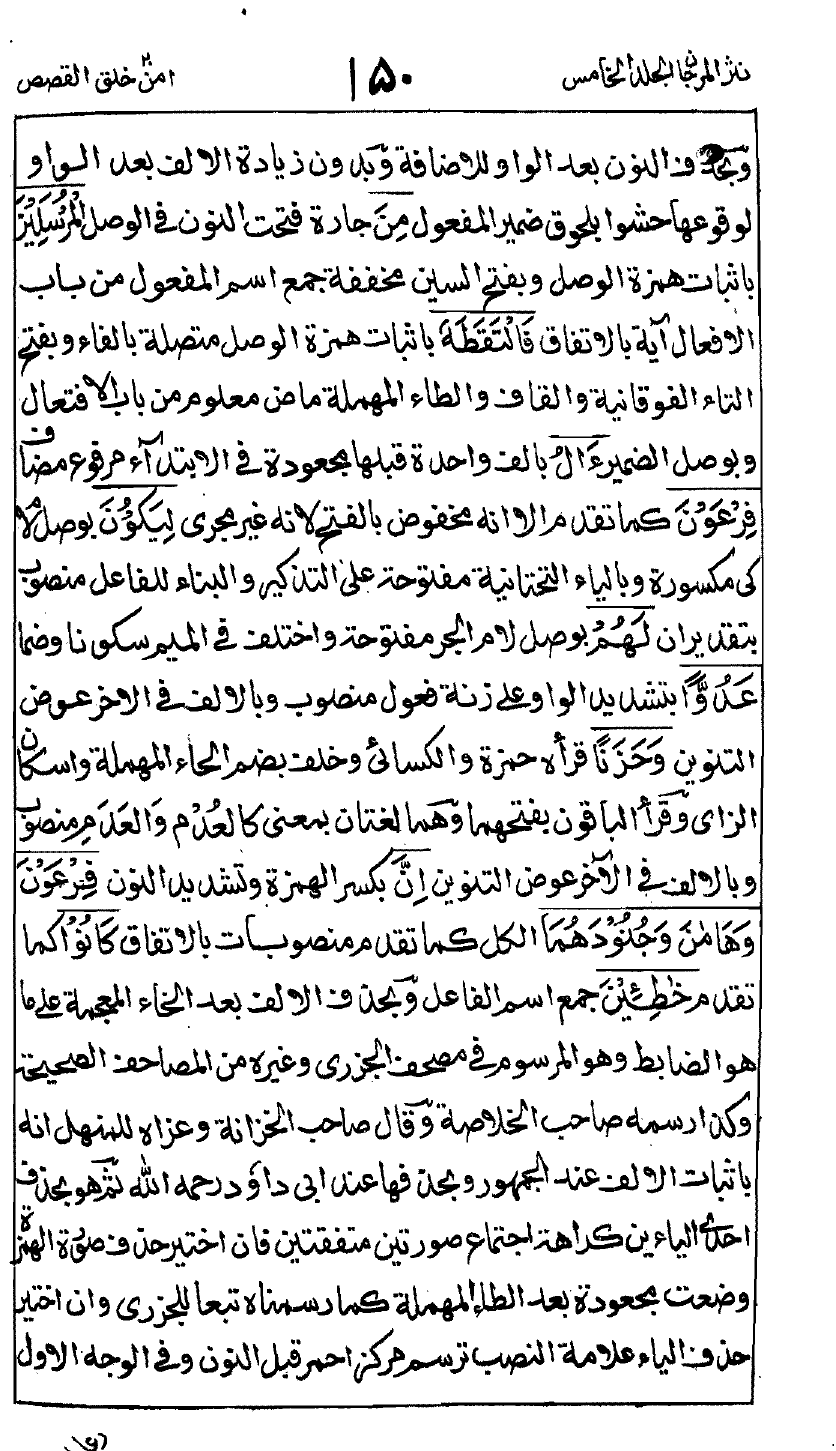 نثر المرجان المجلد الخامس ١٥٠ امن خلق القصص
وبحذف النون بعد الواو للاضافة وبدون زيادة الالف بعد الواو
لوقوعها حشوا بلحوق ضمير المفعول مِنَ جادة فتحت النون فى الوصل الْمُرْسَلِيْنَ
باثبات همزة الوصل وبفتح السين مخففة جمع اسم المفعول من باب
الافعال آية بالاتفاق فَالْتَقَطَهٗ باثبات همزة الوصل متصلة بالفاء وبفتح
التاء الفوقانية والقاف والطاء المهملة ماض معلوم من باب الافتعال
وبوصل الضمير ءَالُ بالف واحدة قبلها مجعودة فى الابتدآء مرفوع مضاف
فِرْعَوْنَ كما تقدم الا انه مخفوض بالفتح لانه غير مجرى لِيَكُوْنَ بوصل لام
كى مكسورة وبالياء التحتانية مفتوحة على التذكير والبناء للفاعل منصوب
بتقدير ان لَهُمْ بوصل لام الجر مفتوحة واختلف فى الميم سكونا وضما
عَدُوًّا بتشديد الواو على زنة فعول منصوب وبالالف فى الاخر عوض
التنوين وَحَزَنًا قرأه حمزة والكسائى وخلف بضم الحاء المهملة واسكان
الزاى وقرأ الباقون بفتحهما وهما لغتان بمعنى كالعُدْم والعَدَم منصوب
وبالالف فى الآخر عوض التنوين اِنَّ بكسر الهمزة وتشديد النون فِرْعَوْنَ
وَهَامٰنَ وَجُنُوْدَهُمَا الكل كما تقدم منصوبات بالاتفاق كَانُوْا كما
تقدم خٰطِـِٕيْنَ جمع اسم الفاعل وبحذف الالف بعد الخاء المعجمة على ما
هو الضابط وهو المرسوم فى مصحف الجزرى وغيره من المصاحف الصحيحة
وكذا رسمه صاحب الخلاصة وقال صاحب الخزانة وعزاه للمنهل انه
باثبات الالف عند الجمهور وبحذفها عند ابى داؤد رحمه الله ثم هو بحذف
احدى الياءين كراهة اجتماع صورتين متفقتين فان اختير حذف صورة الهمزة
وضعت مجعودة بعد الطاء المهملة كما رسمناه تبعا للجزرى وان اختير
حذف الياء علامة النصب ترسم مركز احمر قبل النون وفى الوجه الاول